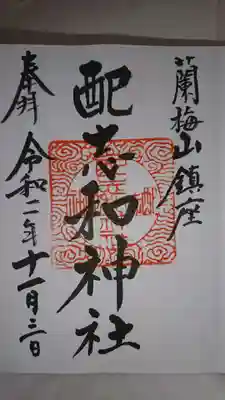 蘭梅山鎮座
配志和神社
奉拝 令和二年十一月三日